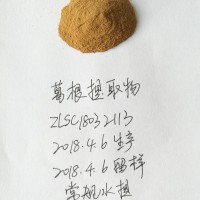 葛根提取物
ZLSC18032113
2018.4.6生产
2018.4.6留样
常规水提